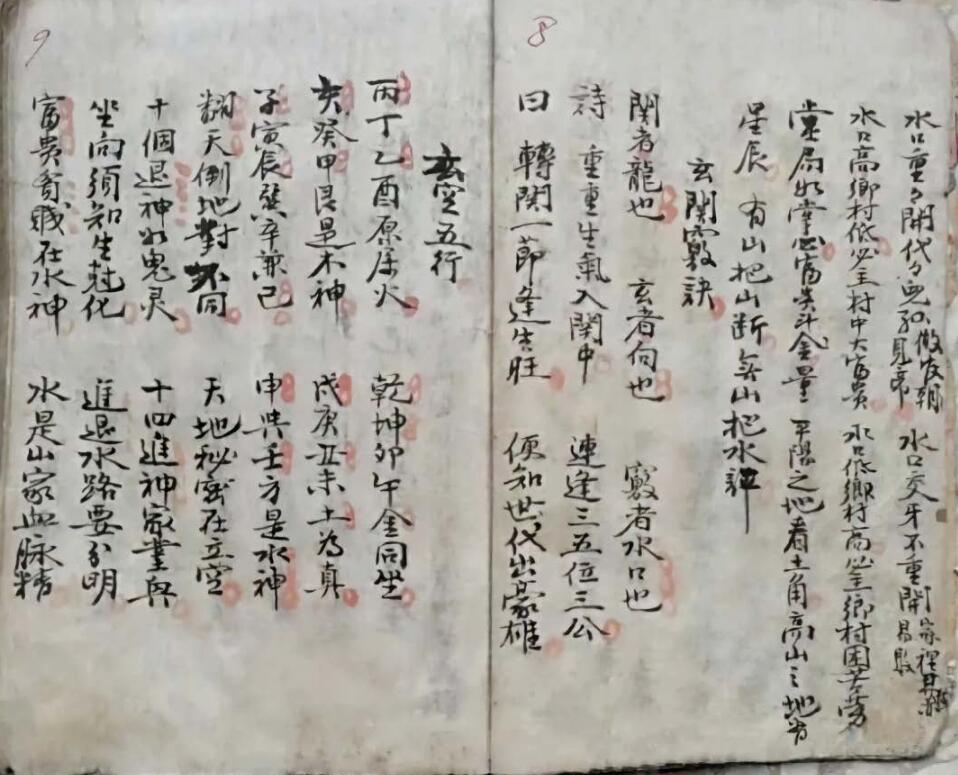 8
水口重々開代々無孤 做官朝見帝 水口交牙不重開 家裡 易敗
水口高鄉村低必主村中大富貴 水口低鄉村高必主鄉村困苦勞
堂局如掌心富貴斗金量 平陽之地看土角高山之地看
星辰 有山把山断無山把水詳
玄関竅訣
関者龍也 玄者向也 竅者水口也
詩 重重生氣入関中 連逢三五位三公
曰 轉関一節逢生旺 便知世代出豪雄
9
玄空五行
丙丁乙酉原属火 乾坤卯午金同坐
亥癸甲艮是木神 戌庚丑未土為真
子寅辰巽辛兼巳 申與壬方是水神
翻天倒地對不同 天地秘密在玄空
十個退神如鬼灵 十四進神家業興
坐向須知生尅化 進退水路要分明
富貴貧賤在水神 水是山家血脉精